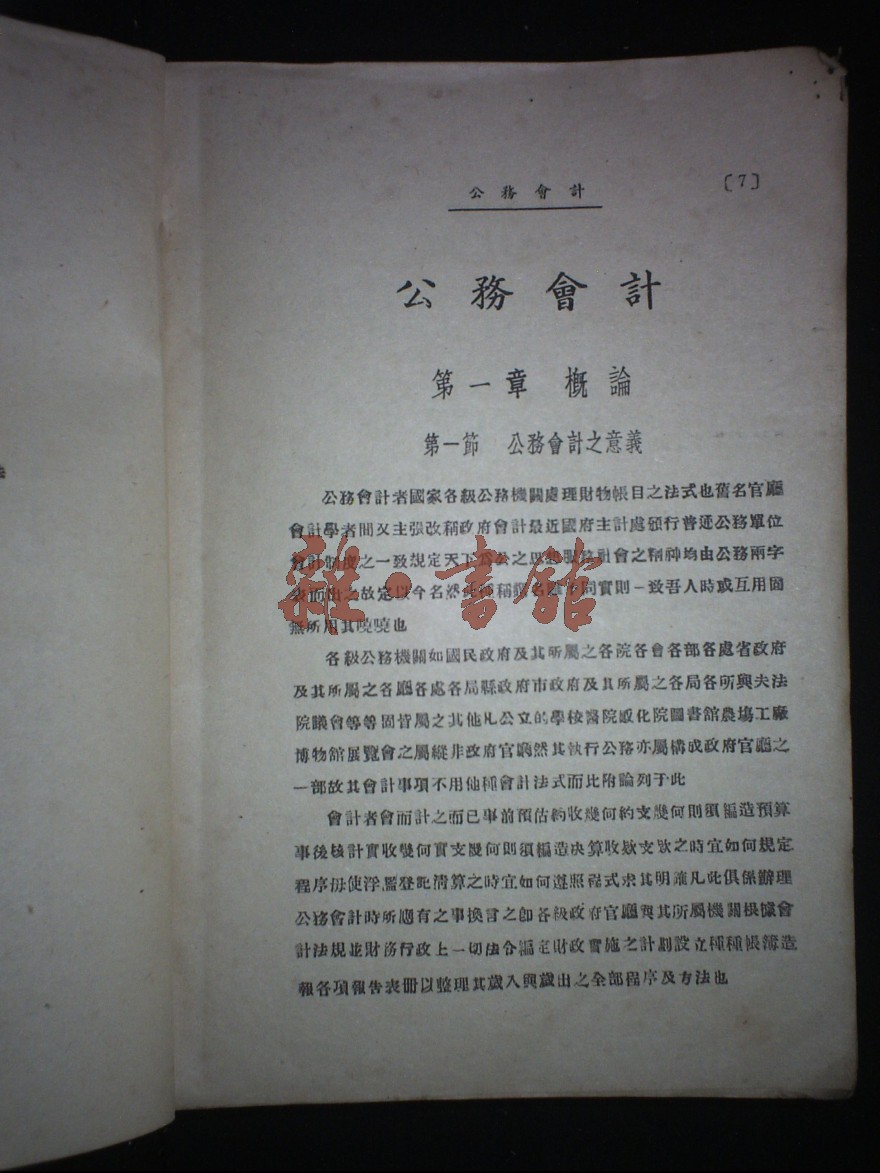 公務會計
〔7〕
公務會計
第一章 概論
第一節 公務會計之意義
公務會計者國家各級公務機關處理財物帳目之法式也舊名官廳
會計學者間又主張改稱政府會計最近國府主計處頒行普通公務單位
會計制度之一致規定天下為公之思想服務社會之精神均由公務兩字
表而出之故定以今名然此種稱謂名雖不同實則一致吾人時或互用固
無所用其曉曉也
各級公務機關如國民政府及其所屬之各院各會各部各處省政府
及其所屬之各廳各處各局縣政府市政府及其所屬之各局各所與夫法
院議會等等固皆屬之其他凡公立的學校醫院感化院圖書館農場工廠
博物館展覽會之屬縱非政府官廳然其執行公務亦屬構成政府官廳之
一部故其會計事項不用他種會計法式而比附論列于此
會計者會而計之而已事前預估約收幾何約支幾何則須編造預算
事後核計實收幾何實支幾何則須編造决算收欵支欵之時宜如何規定
程序毋使浮濫登記清算之時宜如何遵照程式求其明確凡此俱係辦理
公務會計時所應有之事換言之卽各級政府官廳與其所屬機關根據會
計法規並財務行政上一切法令編定財政實施之計劃設立種種帳簿造
報各項報告表冊以整理其歲入與歲出之全部程序及方法也
雜·書館